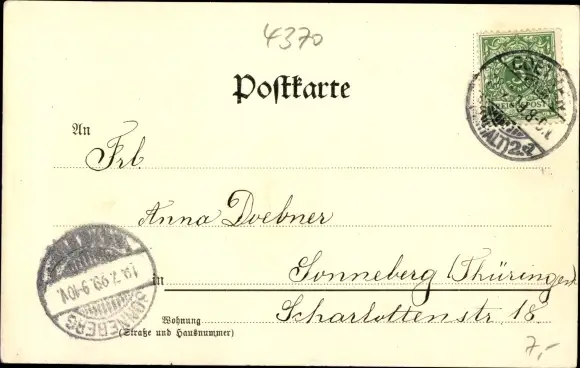 4370
Postkarte
REICHSPOST
An
Frl.
Anna Doebner
in Sonneberg (Thüringen)
Scharlottenstr. 18.
Wohnung
(Straße und Hausnummer)
SONNEBERG
19.7.99.9-10V.
7,-